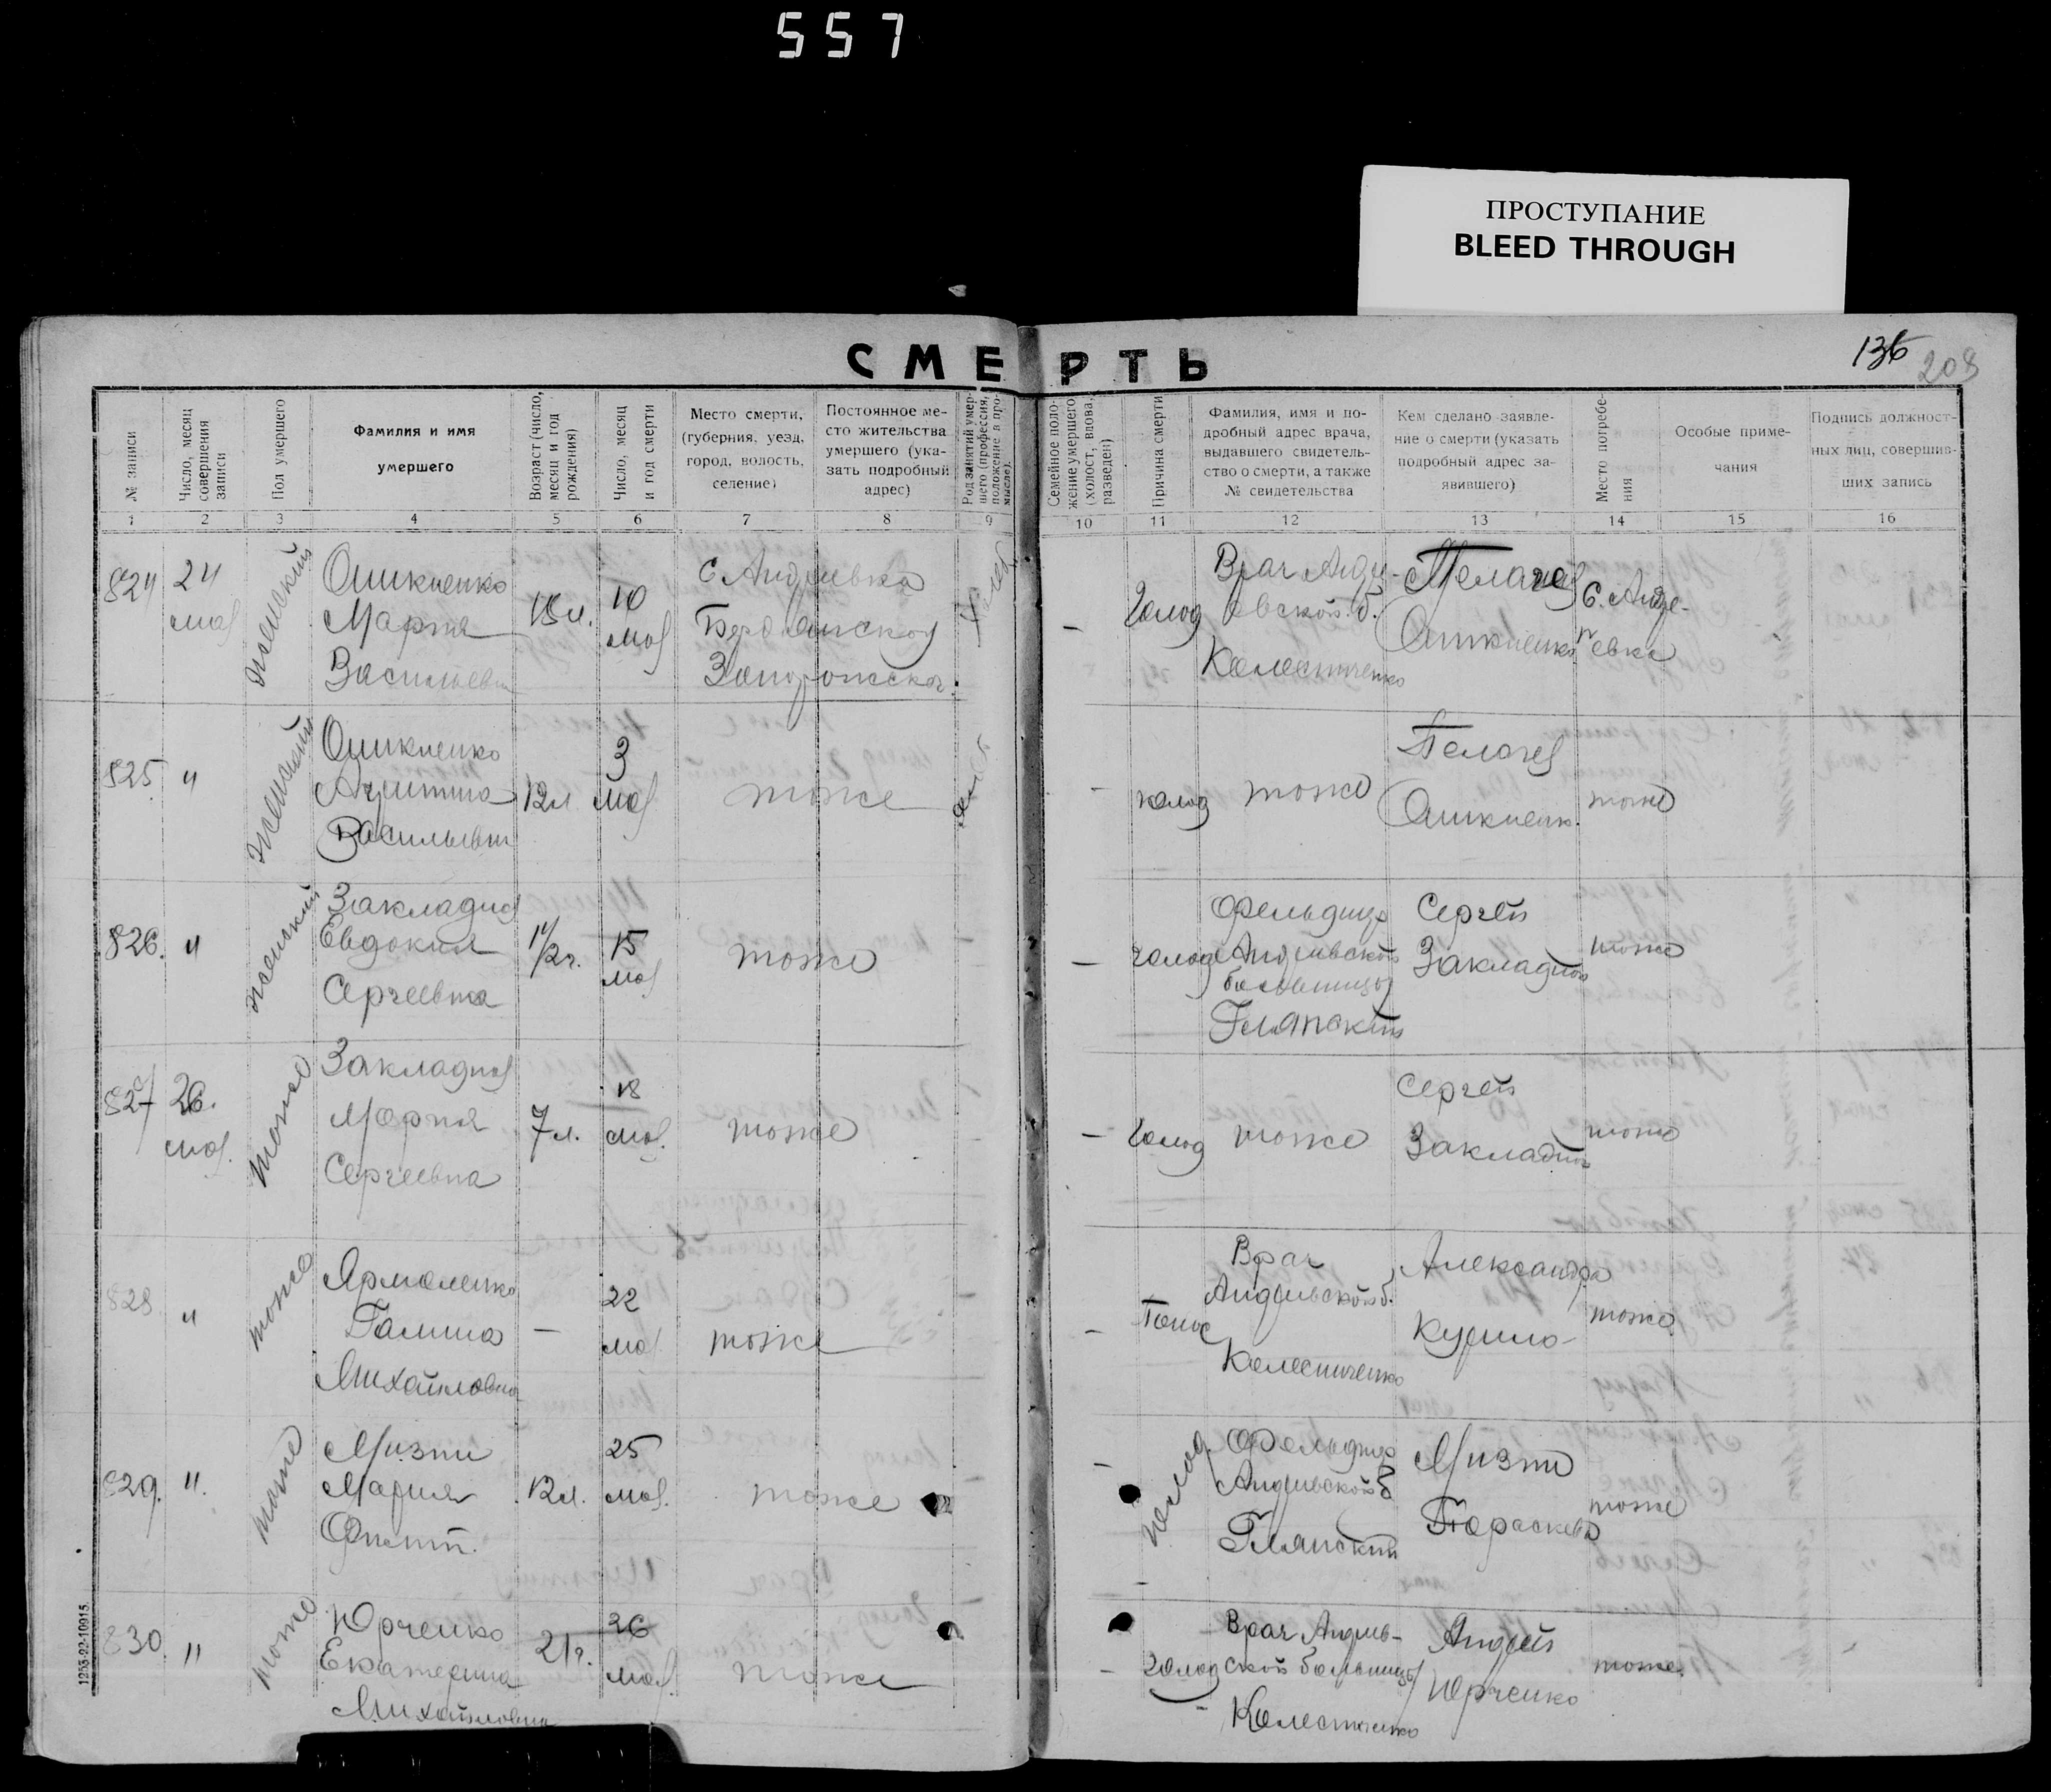 557
ПРОСТУПАНИЕ
BLEED THROUGH
СМЕРТЬ
136
208
№ записи
Число, месяц совершения записи
Пол умершего
Фамилия и имя умершего
Возраст (число, месяц и год рождения)
Число, месяц и год смерти
Место смерти, (губерния, уезд, город, волость, селение)
Постоянное место жительства умершего (указать подробный адрес)
Род занятий умершего (профессия, положение в промысле).
Семейное положение умершего (холост, вдова, разведен)
Причина смерти
Фамилия, имя и подробный адрес врача, выдавшего свидетельство о смерти, а также № свидетельства
Кем сделано заявление о смерти (указать подробный адрес заявившего)
Место погребения
Особые примечания
Подпись должностных лиц, совершивших запись
1 2 3 4 5 6 7 8 9 10 11 12 13 14 15 16
824
24
мая
женский
Ошкиенко
Мария
Васильевн
18 л.
10
мая
С Андреевка
Бердянской
Запорожской
–
Голод
Врач Андре-
евской б.
Колесниченко
Пелагея
Ошкиенко
С. Андре-
евка
825
"
женский
Ошкиенко
Васильевн
12 л
3
мая
тоже
–
голод
тоже
Пелагея
Ошкиенк.
тоже
826.
"
женский
Закладная
Евдокия
Сергеевна
1 1/2 г.
15
мая
тоже
–
голод
Фельдшер
Андреевской
больницы
Глянский
Сергей
Закладной
тоже
827
26.
мая.
тоже
Закладная
Мария
Сергеевна
7 л.
18
мая.
тоже
–
Голод
тоже
Сергей
Закладной
тоже
828
"
тоже
Ярмоленко
Галина
Михайловна
–
22
мая
тоже
–
Понос
Врач
Андреевской б.
Колесниченко
Александра
тоже
829.
".
тоже
Мизти
Мария
12 л.
25
мая.
тоже
–
Голод.
Фельдшер
Андреевской б
Глянский
Мизти
Параскева
тоже
830.
"
тоже
Юрченко
Екатерина
Михайловна
21 г.
26
мая.
тоже
–
Голод
Врач Андреев-
ской больницы
Колесниченко
Андрей
Юрченко
тоже.
1253-22-10915.